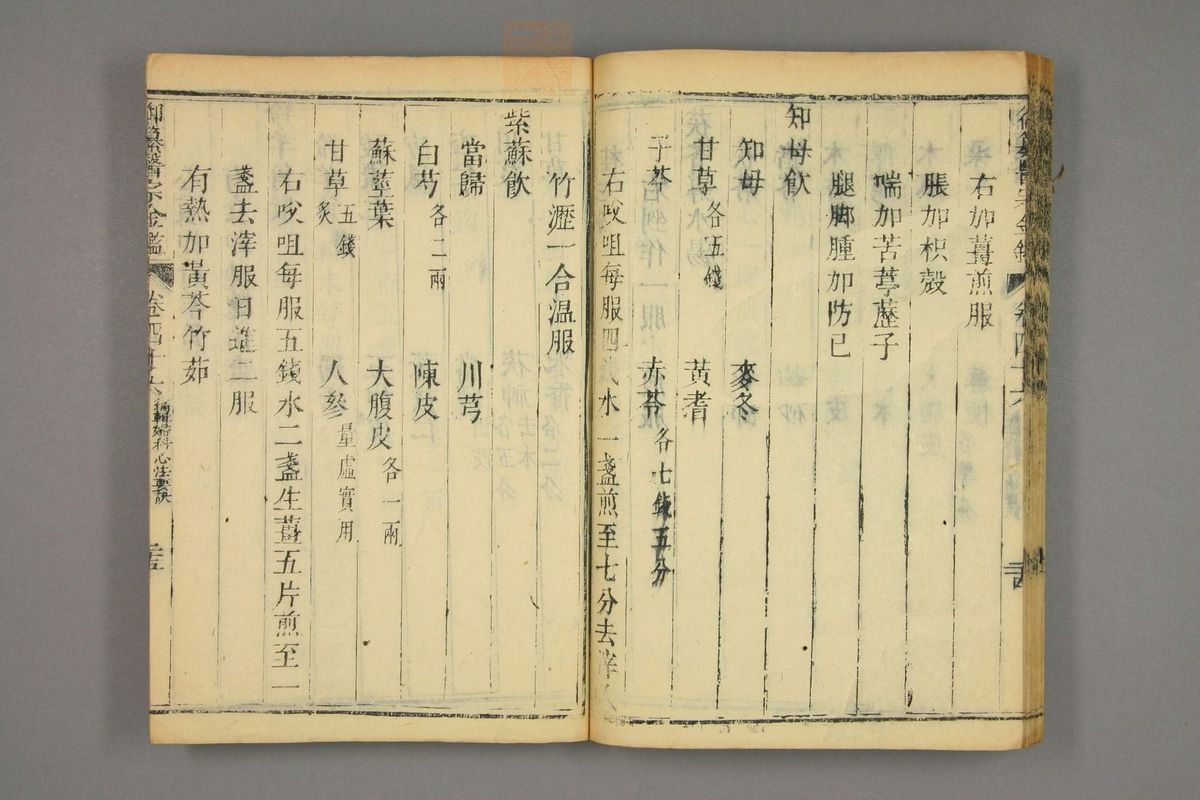 右加薑煎服
脹加枳殼
喘加苦葶藶子
腿脚腫加防已
知母飲
知母　麥冬
甘草各五錢　黄耆
子芩　赤苓各七錢五分
右㕮咀每服四錢水一盞煎至七分去滓入
竹瀝一合温服
紫蘇飲
當歸　川芎
白芍各二兩　陳皮
蘇莖葉　大腹皮各一兩
甘草炙五錢　人參量虛實用
右㕮咀每服五錢水二盞生薑五片煎至一
盞去滓服日進二服
有熱加黃芩竹茹
御纂醫宗金鑑　卷四十六　編輯婦科心法要訣